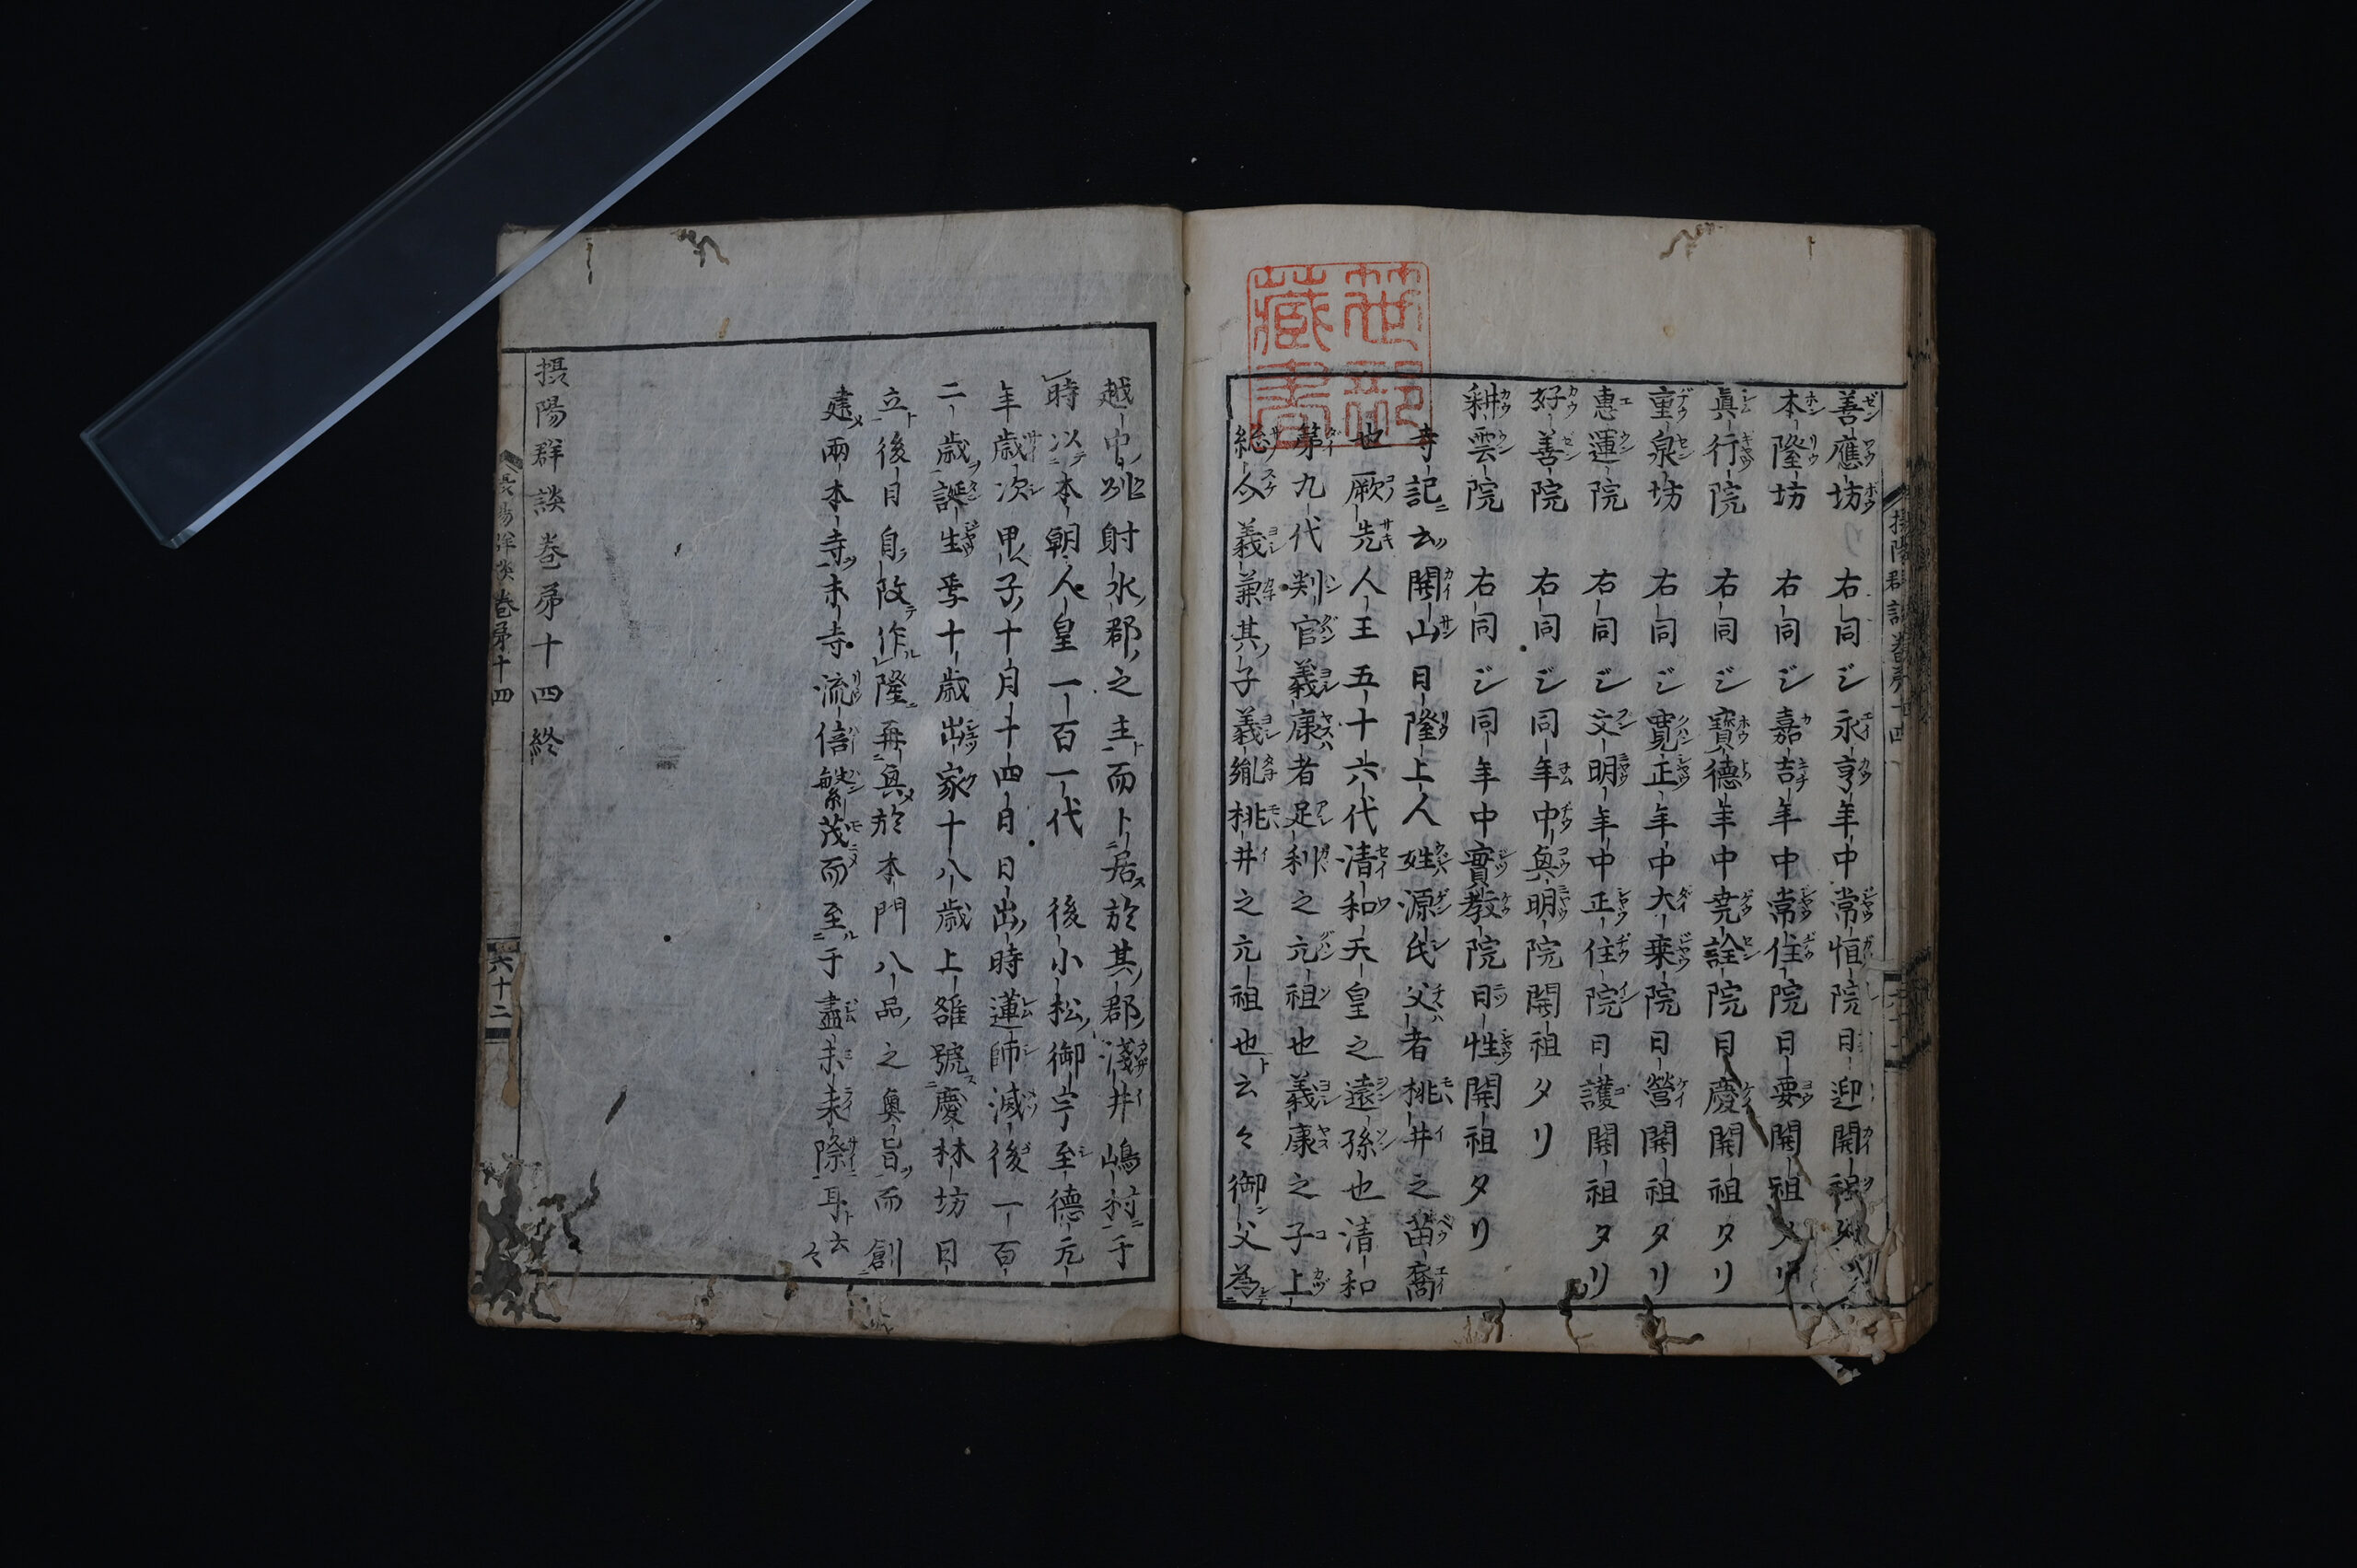 善應坊 右同ジ永亨年中常恒院日迎開祖タリ
本隆坊 右同ジ嘉吉年中常住院日要開祖タリ
眞行院 右同ジ寳德年中尭詮院日慶開祖タリ
重泉坊 右同ジ寛正年中大乗院日營開祖タリ
惠運院 右同ジ文明年中正住院日護開祖タリ
好善院 右同ジ同年中與明院開祖タリ
耕雲院 右同ジ同年中實教院日性開祖タリ
寺記云開山日隆上人姓源氏父者桃井之苗裔
也厥先人王五十六代清和天皇之遠孫也清和
第九代判官義康者足利之元祖也義康之子上
総介義兼其子義胤桃井之元祖也云々御父為
越中州射水郡之主而卜居於其郡淺井嶋村于
時以本朝人皇一百一代 後小松御宇至德元
年歳次甲子十月十四日日出時蓮師滅後一百
二歳誕生季十歳出家十八歳上雒號慶林坊日
立後日自改作隆再興於本門八品之奥旨而創
建兩本寺末寺流倍繁茂而至于盡未来際耳云々
摂陽群談巻第十四終
摂陽群談巻第十四
六十二